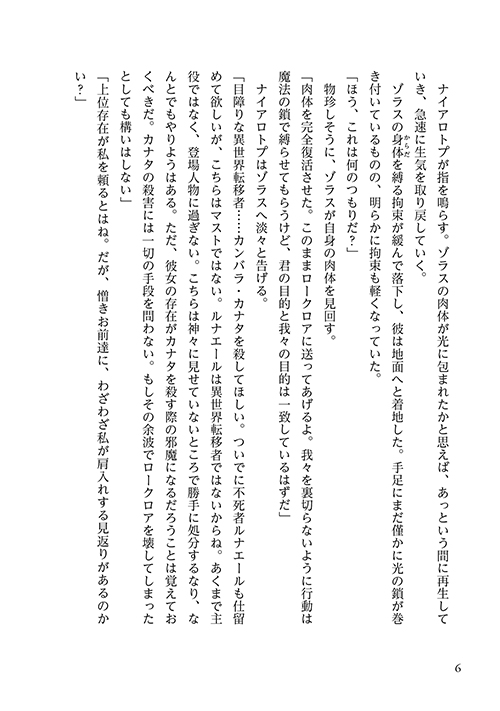 ナイアロトプが指を鳴らす。ゾラスの肉体が光に包まれたかと思えば、あっという間に再生して
いき、急速に生気を取り戻していく。
ゾラスの身体を縛る拘束が緩んで落下し、彼は地面へと着地した。手足にまだ僅かに光の鎖が巻
からだ
き付いているものの、明らかに拘束も軽くなっていた。
「ほう、これは何のつもりだ?」
物珍しそうに、ゾラスが自身の肉体を見回す。
「肉体を完全復活させた。このままロークロアに送ってあげるよ。我々を裏切らないように行動は
魔法の鎖で縛らせてもらうけど、君の目的と我々の目的は一致しているはずだ」
ナイアロトプはゾラスへ淡々と告げる。
「目障りな異世界転移者……カンバラ・カナタを殺してほしい。ついでに不死者ルナエールも仕留
めて欲しいが、こちらはマストではない。ルナエールは異世界転移者ではないからね。あくまで主
役ではなく、登場人物に過ぎない。こちらは神々に見せていないところで勝手に処分するなり、な
んとでもやりようはある。ただ、彼女の存在がカナタを殺す際の邪魔になるだろうことは覚えてお
くべきだ。カナタの殺害には一切の手段を問わない。もしその余波でロークロアを壊してしまった
としても構いはしない」
「上位存在が私を頼るとはね。だが、憎きお前達に、わざわざ私が肩入れする見返りがあるのか
い?」
6